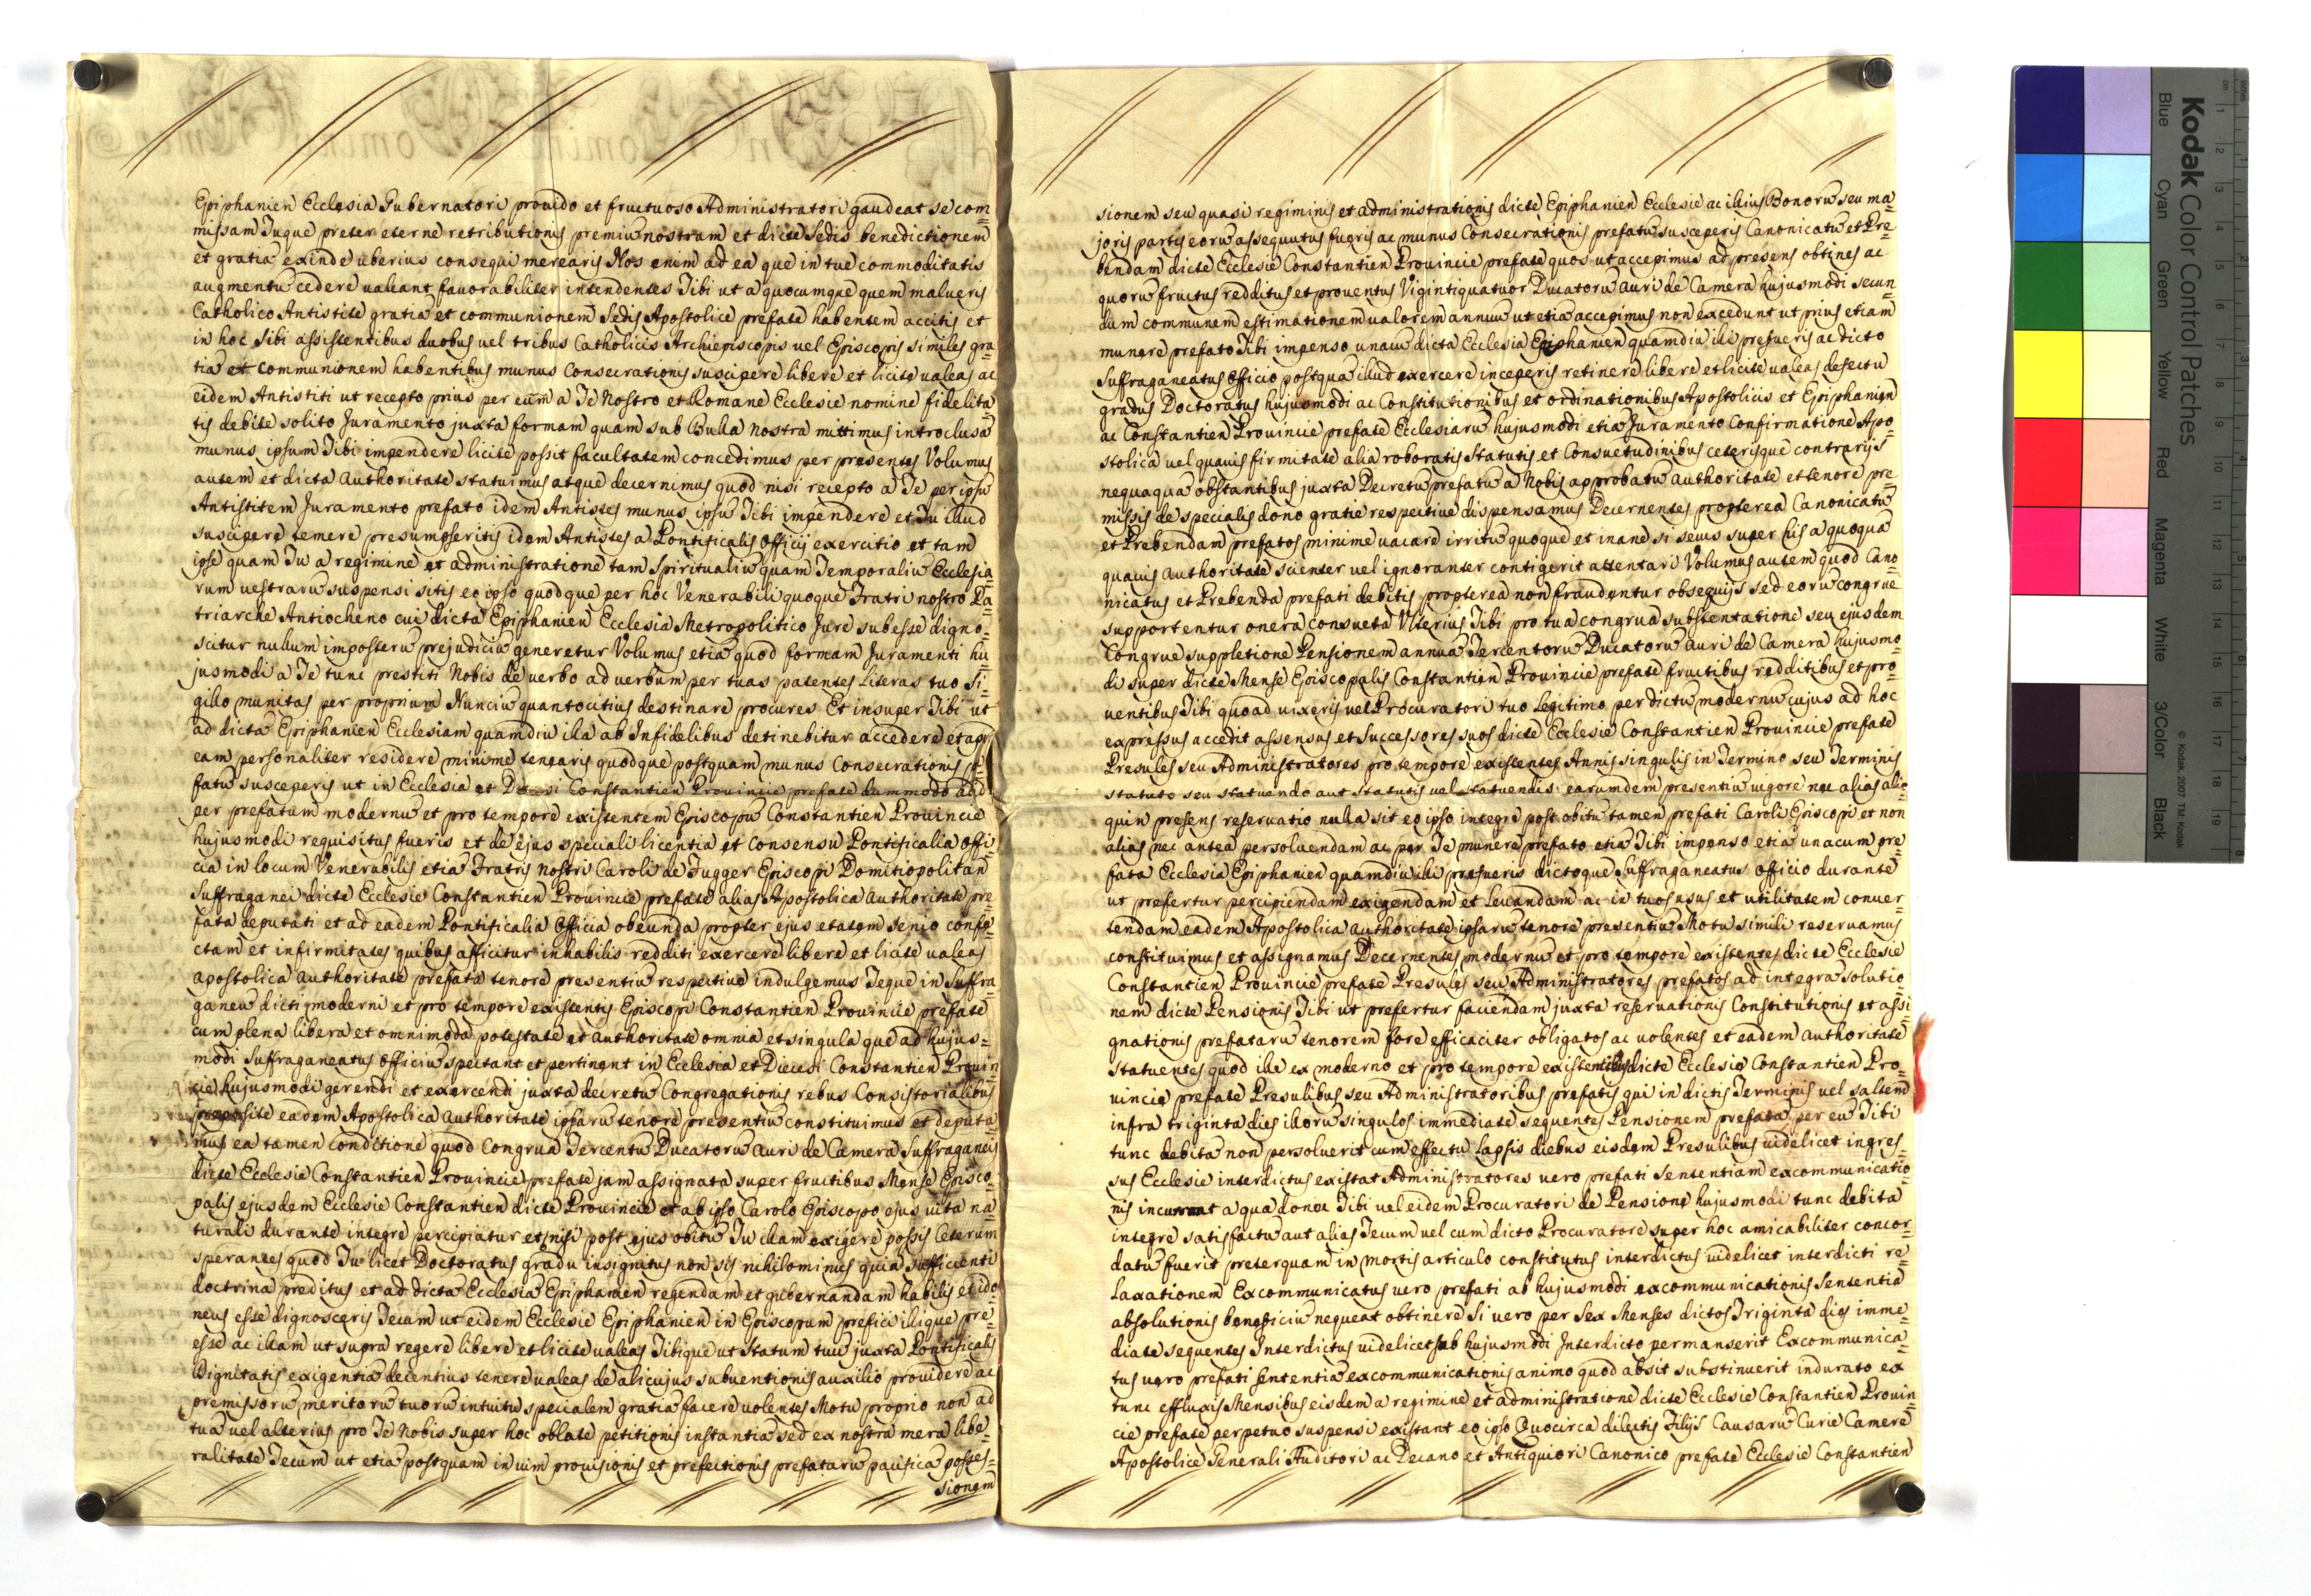 Epiphanien Ecclesia Gubernatori provido et fructuoso Administratori gaudeat se com=
missam Tuque preter eterne retributionis premiu nostram et dicte Sedis benedictionem
et gratia exinde uberius consequi merearis Nos enim ad ea que in tue commoditatis
augmentu cedere valeant favorabiliter intendentes Tibi ut a quocumque quem malueris
Catholico Antistite gratia et communionem Sedis Apostolice prefate habentem accitis et
in hoc sibi assistentibus duobus vel tribus Catholicis Archiepiscopis vel Episcopis similes gra=
tia et communionem habentibus munus Consecrationis suscipere libere et licite valeas ac
eidem Antistiti ut recepto prius per eum a Te Nostro et Romane Ecclesie nomine fidelita
tis debite solito Juramento juxta formam quam sub Bulla nostra mittimus introclusa
munus ipsum Tibi impendere licite possit facultatem concedimus per presentes Volumus
autem et dicta Authoritate statuimus atque decernimus quod nisi recepto a Te per ipsu
Antistitem Juramento prefato idem Antistes munus ipsu Tibi impendere et Tu illud
suscipere temere presumpseritis idem Antistes a Pontificalis Officij exercitio et tam
ipse quam Tu a regimine et administratione tam Spiritualiu quam Temporaliu Ecclesia=
rum vestraru suspensi sitis eo ipso quodque per hoc Venerabili quoque Fratri nostro Pa=
triarche Antiocheno cui dicta Epiphanien Ecclesia Metropolitico Jure subesse digno=
scitur nullum imposteru prejudiciu generetur Volumus etia quod formam Juramenti hu=
jusmodi a Te tunc prestiti Nobis de verbo ad verbum per tuas patentes literas tuo Si=
gillo munitas per proprium Nunciu quantocitius destinare procures Et insuper Tibi ut
ad dicta Epiphanien Ecclesiam quamdiu illa ab Infidelibus detinebitur accedere et apud
eam personaliter residere minime tenearis quodque postquam munus Consecrationis pre=
fatu susceperis ut in Ecclesia et Diecesi Constantien Provincie prefate dummodo ad id
per prefatum modernu et pro tempore existentem Episcopu Constantien Provincie
hujusmodi requisitus fueris et de ejus speciali licentia et consensu Pontificalia Offi=
cia in locum Venerabilis etia Fratris nostri Caroli de Fugger Episcopi Domitiopolitan
Suffraganei dicte Ecclesie Constantien Provincie prefate alias Apostolica authoritate pre=
fata deputati et ad eadem Pontificalia Officia obeunda propter ejus etatem senio confe=
ctam et infirmitates quibus afficitur inhabilis redditi exercere libere et licite valeas
apostolica authoritate prefata tenore presentiu respective indulgemus Teque in Suffra=
ganeu dicti moderni et pro tempore existentis Episcopi Constantien Provincie prefate
cum plena libera et omnimoda potestate et authoritate omnia et singula que ad hujus=
modi Suffraganeatus Officiu spectant et pertinent in Ecclesia et Diecesi Constantien Provin
cie hujusmodi gerendi et exercendi juxta decretu Congregationis rebus Consistorialibus
preposite eadem Apostolica authoritate ipsaru tenore presentiu constituimus et deputa
mus ea tamen conditione quod Congrua Tercentu Ducatoru auri de Camera Suffraganeis
dicte Ecclesie Constantien Provincie prefate jam assignata super fructibus Mense Episco=
palis ejusdem Ecclesie Constantien dicte Provincie et ab ipso Carolo Episcopo ejus vita na=
turali durante integre percipiatur et nisi post ejus obitu Tu illam exigere possis Ceterum
sperantes quod Tu licet Doctoratus gradu insignitus non sis nihilominus quia sufficienti
doctrina preditus et ad dicta Ecclesia Epiphanien regendam et gubernandam habilis et ido
neus esse dignosceris Tecum ut eidem Ecclesie Epiphanien in Episcopum prefici illique pre=
esse ac illam ut supra regere libere et licite valeas Tibique ut statum tuu juxta Pontificalis
Dignitatis exigentia decentius tenere valeas de alicujus subventionis auxilio providere ac
premissoru meritoru tuoru intuitu specialem gratia facere volentes Motu proprio non ad
tua vel alterius pro Te Nobis super hoc oblate petitionis instantia sed ex nostra mera libe=
ralitate Tecum ut etia postquam in vim provisionis et prefectionis prefataru pacifica posses=
sionem
sionem seu quasi regiminis et administrationis dicte Epiphanien Ecclesie ac illius Bonoru seu ma=
joris partis eoru assequutus fueris ac munus Consecrationis prefatu susceperis Canonicatu et Pre=
bendam dicte Ecclesie Constantien Provincie prefate quos ut accepimus ad presens obtines ac
quoru fructus redditus et proventus Vigintiquatuor Ducatoru auri de Camera hujusmodi secun=
dum communem estimationem valorem annuu ut etia accepimus non excedunt ut prius etiam
munere prefato Tibi impenso unacu dicta Ecclesia Epiphanien quamdiu illi prefueris ac dicto
Suffraganeatus Officio postqua illud exercere inceperis retinere libere et licite valeas defectu
gradus Doctoratus hujusmodi ac Constitutionibus et ordinationibus Apostolicis et Epiphanien
ac Constantien Provincie prefate Ecclesiaru hujusmodi etia Juramento Confirmatione Apo=
stolica vel quavis firmitate alia roboratis Statutis et Consuetudinibus ceterisque contrarijs
nequaqua obstantibus juxta Decretu prefatu a Nobis approbatu authoritate et tenore pre=
missis de specialis dono gratie respective dispensamus Decernentes propterea Canonicatu
et Prebendam prefatos minime vacare irritu quoque et inane si secus super his a quoqua
quavis authoritate scienter vel ignoranter contigerit attentari Volumus autem quod Cano=
nicatus et Prebenda prefati debitis propterea non fraudentur obsequijs sed eoru congrue
supportentur onera consueta Ulterius Tibi pro tua congrua substentatione seu ejusdem
Congrue suppletione Pensionem annua Tercentoru Ducatoru auri de Camera hujusmo=
di super dicte Mense Episcopalis Constantien Provincie prefate fructibus redditibus et pro=
ventibus Tibi quoad vixeris vel Procuratori tuo legitimo per dictu modernu cujus ad hoc
expressus accedit assensus et Successores suos dicte Ecclesie Constantien Provincie prefate
Presules seu Administratores pro tempore existentes Annis singulis in Termino seu Terminis
statuto seu statuendo aut statutis vel statuendis earumdem presentiu vigore nec alias alio=
quin presens reservatio nulla sit eo ipso integre post obitu tamen prefati Caroli Episcopi et non
alias nec antea persolvendam ac per Te munere prefato etia Tibi impenso etia unacum pre=
fata Ecclesia Epiphanien quamdiu illi prefueris dictoque Suffraganeatus Officio durante
ut prefertur percipiendam exigendam et levandam ac in tuos usus et utilitatem conver=
tendam eadem Apostolica authoritate ipsaru tenore presentiu Motu simili reservamus
constituimus et assignamus Decernentes modernu et pro tempore existentes dicte Ecclesie
Constantien Provincie prefate Presules seu Administratores prefatos ad integra solutio=
nem dicte Pensionis Tibi ut prefertur faciendam juxta reservationis Constitutionis et assi=
gnationis prefataru tenorem fore efficaciter obligatos ac volentes et eadem authoritate
statuentes quod ille ex moderno et pro tempore existentibus dicte Ecclesie Constantien Pro=
vincie prefate Presulibus seu Administratoribus prefatis qui in dictis Terminis vel saltem
infra triginta dies illoru singulos immediate sequentes Pensionem prefata per eu Tibi
tunc debita non persolverit cum effectu lapsis diebus eisdem Presulibus videlicet ingres=
sus Ecclesie interdictus existat Administratores vero prefati Sententiam excommunicatio=
nis incurrant a qua donec Tibi vel eidem Procuratori de Pensione hujusmodi tunc debita
integre satisfactu aut alias Tecum vel cum dicto Procuratore super hoc amicabiliter concor=
datu fuerit preterquam in mortis articulo constitutus interdictus videlicet interdicti re=
laxationem Excommunicatus vero prefati ab hujusmodi excommunicationis Sententia
absolutionis beneficiu nequeat obtinere Si vero per Sex Menses dictos Triginta dies imme=
diate sequentes Interdictus videlicet sub hujusmodi Interdicto permanserit Excommunica=
tus vero prefati Sententia excommunicationis animo quod absit substinuerit indurato ex
tunc effluxis Mensibus eisdem a regimine et administratione dicte Ecclesie Constantien Provin=
cie prefate perpetuo suspensi existant eo ipso Quocirca dilectis Filijs Causaru Curie Camere
Apostolice Generali Auditori ac Decano et Antiquiori Canonico prefate Ecclesie Constantien
Kodak Color Control Patches
Blue Cyan Green Yellow Red Magenta White 3/Color Black
© Kodak, 2007 TM: Kodak
cm 1 2 3 4 5 6 7 8 9 10 11 12 13 14 15 16 17 18 19